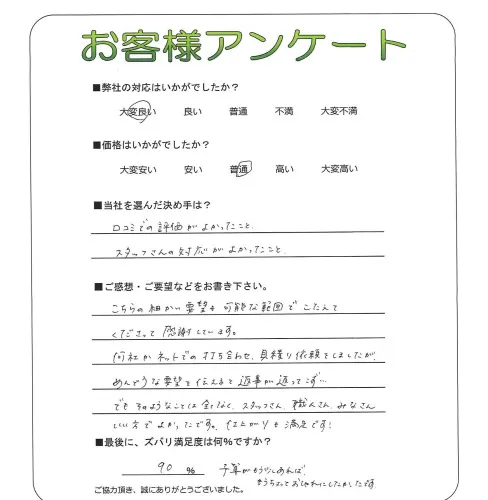 お客様アンケート
■弊社の対応はいかがでしたか?
大変良い 良い 普通 不満 大変不満
■価格はいかがでしたか?
大変安い 安い 普通 高い 大変高い
■当社を選んだ決め手は?
口コミでの評価がよかったこと
スタッフさんの対応がよかったこと
■ご感想・ご要望などをお書き下さい。
こちらの細かい要望も可能な範囲でこたえて
くださって感謝しています。
何社かネットでの打ち合わせ、見積り依頼をしましたが、
めんどうな要望を伝えると返事が返ってこず…
でもそのようなことは全くなく、スタッフさん、職人さん、みなさん
いい方でよかったです。仕上がりも満足です!
■最後に、ズバリ満足度は何%ですか?
90 % 予算がもう少しあれば、
もうちょっとおしゃれにしたかったです
ご協力頂き、誠にありがとうございました。